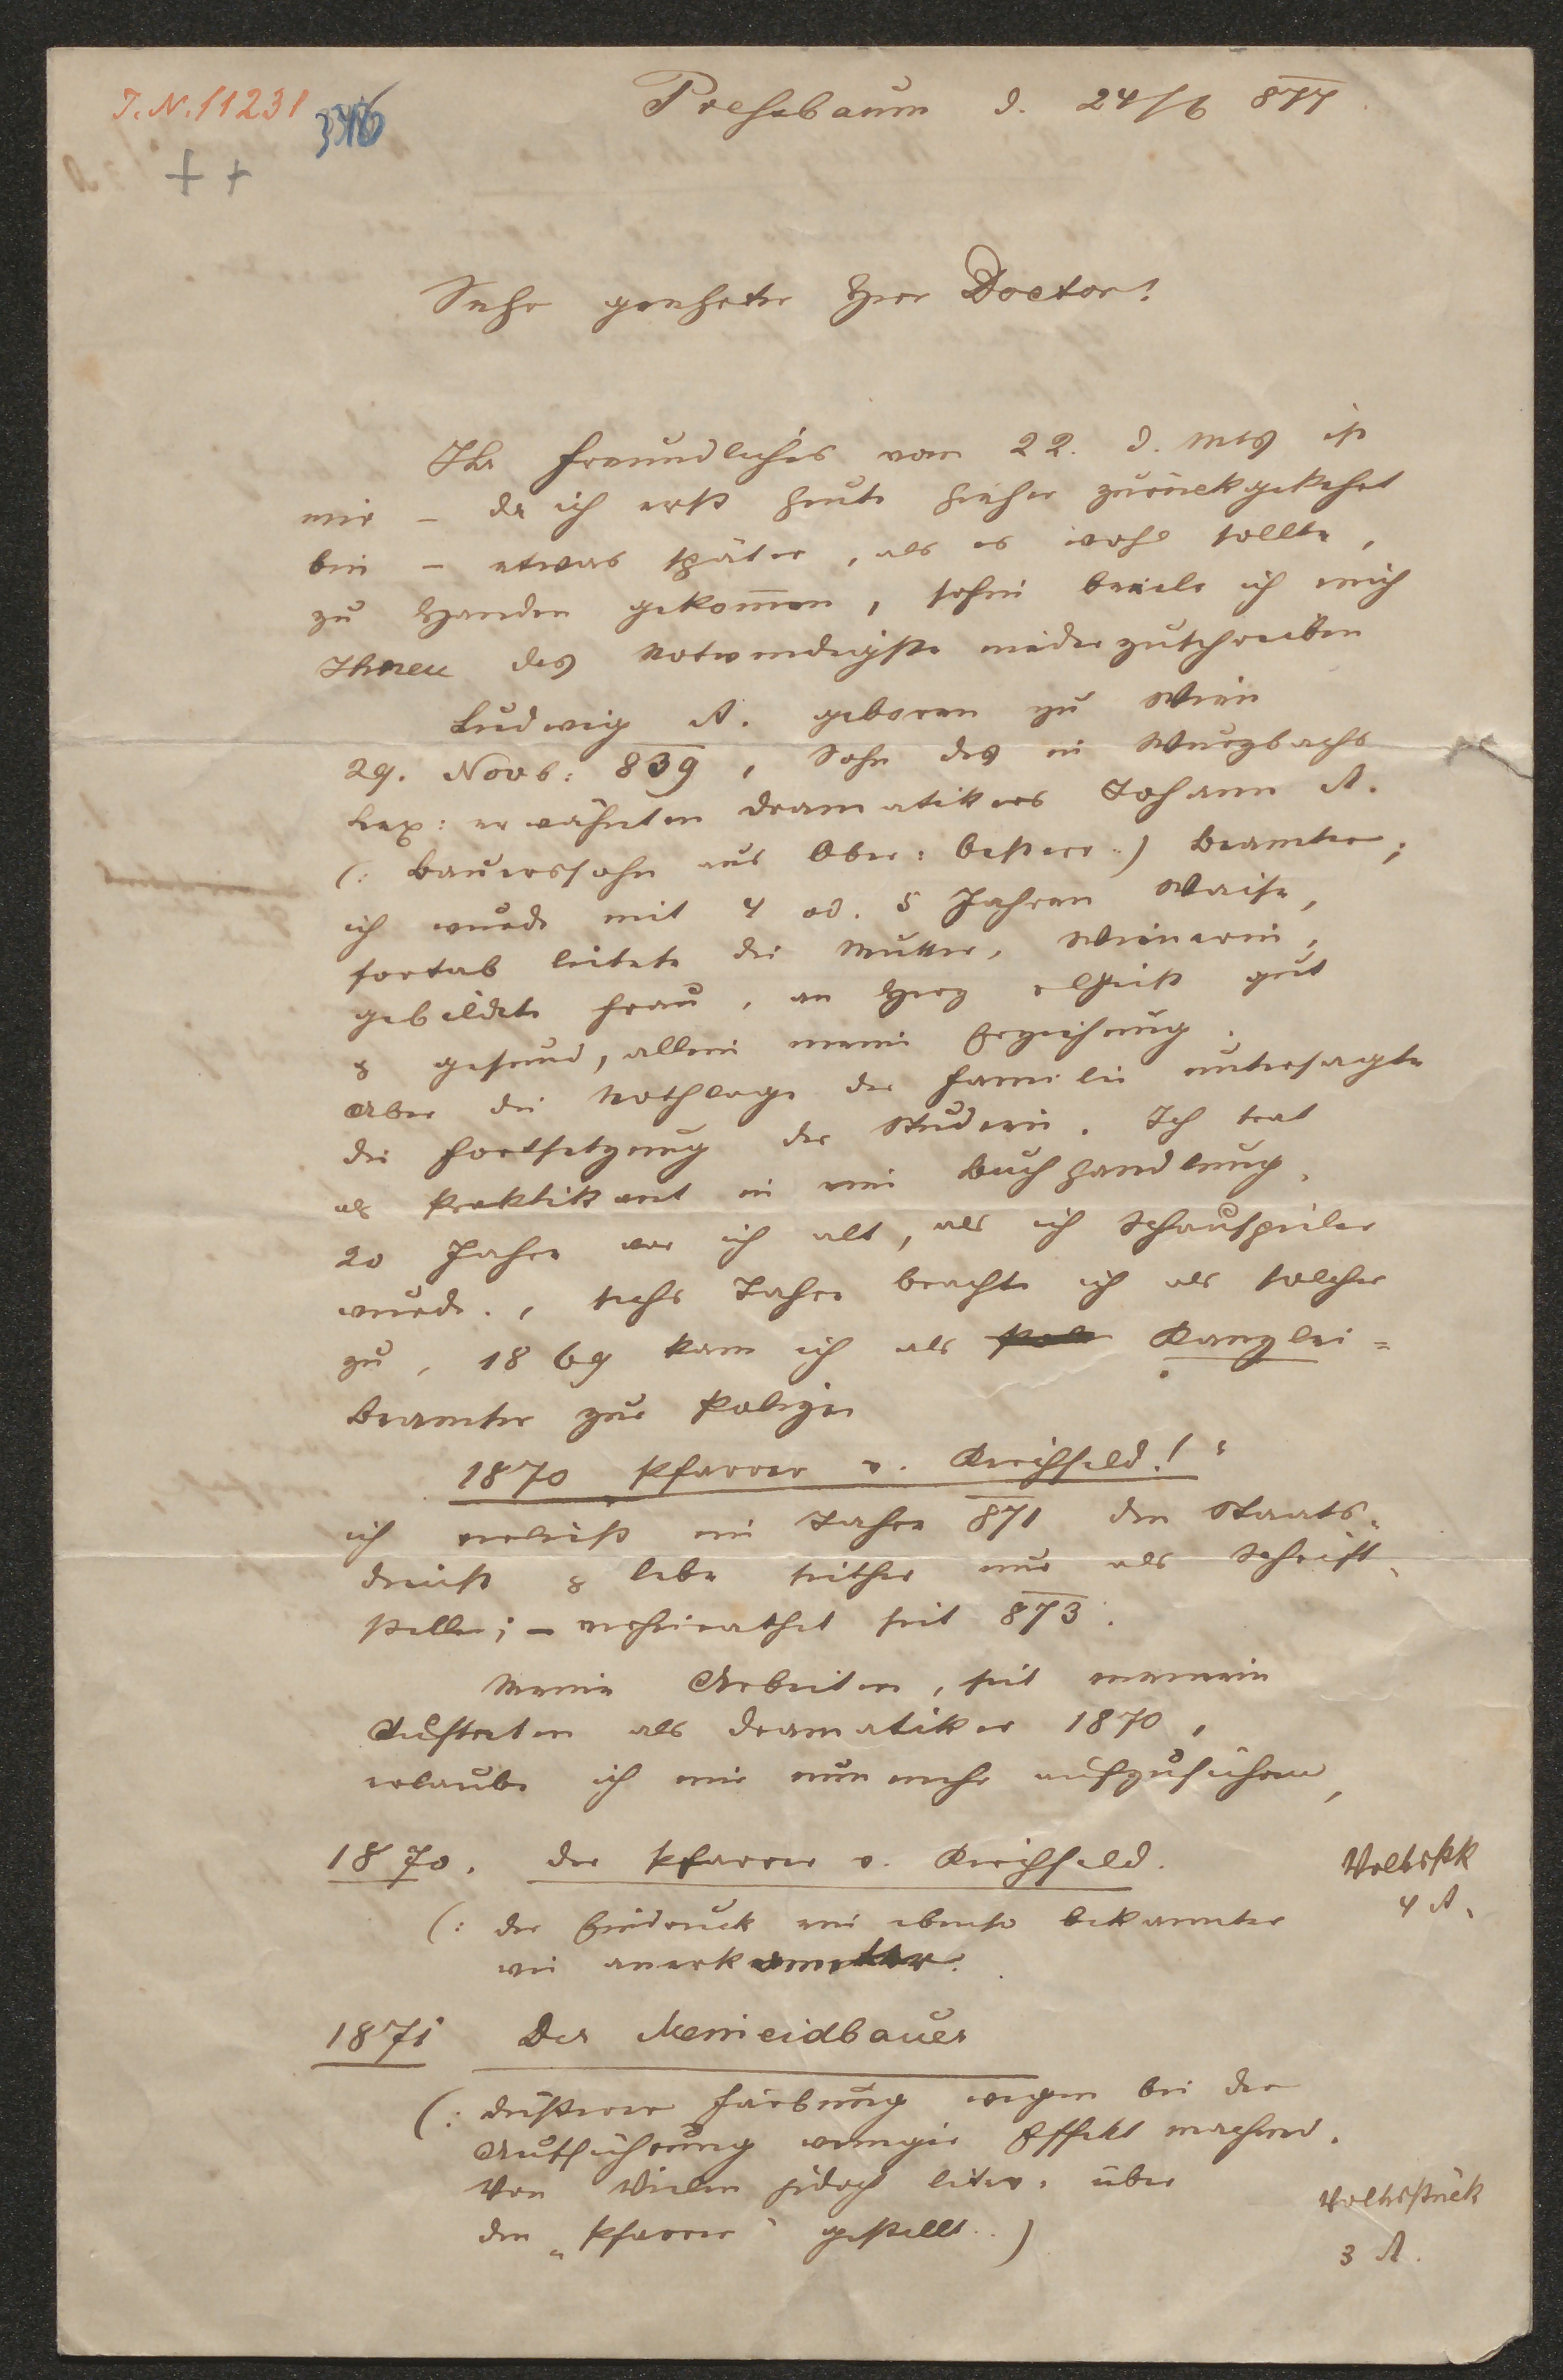 J. N. 11231
346
Preßbaum d. 24/6 877
Sehr geehrter Herr Doctor!
Ihr freundliches vom 22. d. Mts ist
mir – da ich erst heute hieher zurückgekehrt
bin – etwas später, als es wohl sollte,
zu Handen gekommen, sohin beeile ich mich
Ihnen das Notwendigste niederzuschreiben
Ludwig A. geboren zu Wien
29. Novb: 839, Sohn des in Wurzbachs
Lex: erwähnten Dramatikers Johann A.
(: Bauerssohn aus Ober: Oesterr..) Beamter;
ich wurde mit 4 od. 5 Jahren Waise,
fortab leitete die Mutter, Wienerin,
gebildete Frau, an Herz u Geist gut
& gesund, allein meine Erziehung.
Aber die Nothlage der Familie untersagte
die Fortsetzung der Studien. Ich trat
als Praktikant in eine Buchhandlung.
20 Jahre war ich alt, als ich Schauspieler
wurde., sechs Jahre brachte ich als solcher
zu, 1869 kam ich als Kanzlei=
beamter zur Polizei
1870 Pfarrer v. Kirchfeld!"
ich verließ im Jahre 871 den Staats-
dienst & lebe seither nur als Schrift-
steller; – verheirathet seit 873.
Meine Arbeiten, seit meinem
Auftreten als Dramatiker 1870,
erlaube ich mir nunmehr aufzuführen,
1870. Der Pfarrer v. Kirchfeld. Volksstk
4 A.
(: der Eindruck ein ebenso bekannter
wie anerkannter.
1871 Der Meineidbauer
(: düsterer Färbung wegen bei der
Aufführung weniger Effekt machend.
Von Vielen jedoch liter. über Volksstück
den „Pfarrer" gestellt..) 3 A.